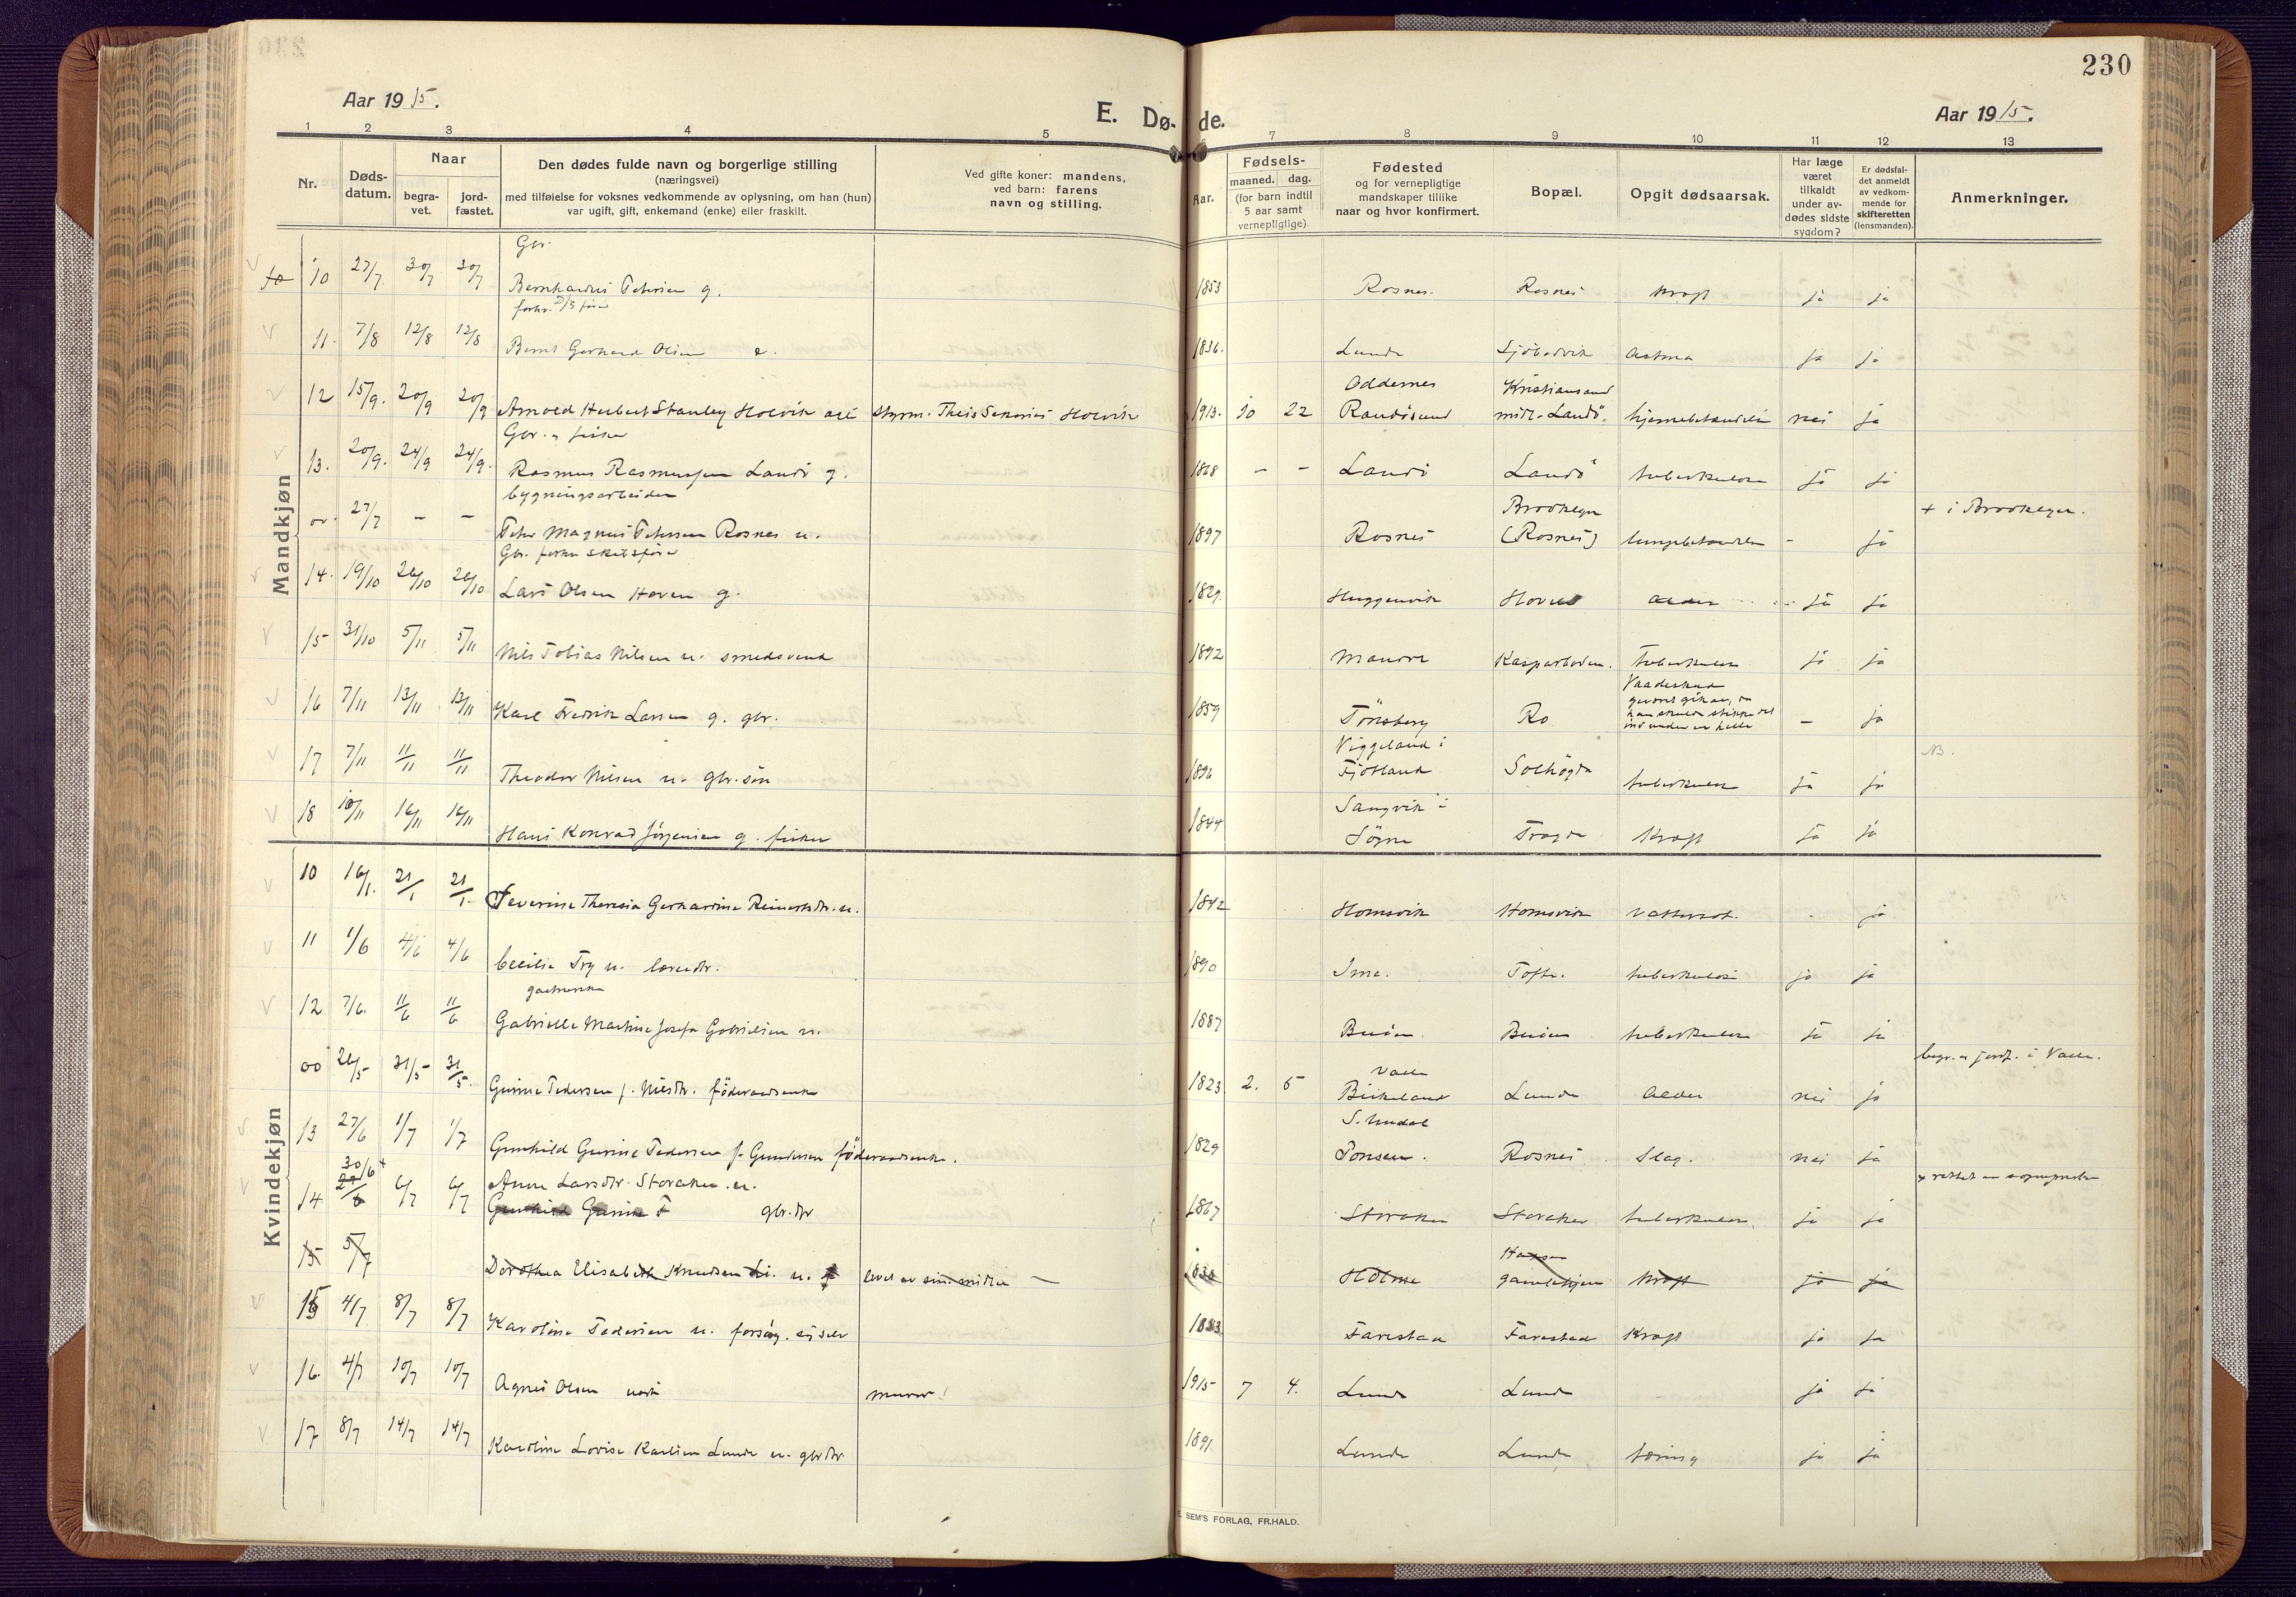 230
Aar 1915.
E. Dø- de.
Aar 1915.
1 2 3 4 5 7 8 9 10 11 12 13
Nr.
Døds-
datum.
Naar
begra-
vet.
jord-
fæstet.
Den dødes fulde navn og borgerlige stilling
(næringsvei)
med tilføielse for voksnes vedkommende av oplysning, om han (hun)
var ugift, gift, enkemand (enke) eller fraskilt.
Ved gifte koner: mandens,
ved barn: farens
navn og stilling.
Aar.
Fødsels-
maaned. dag.
(for barn indtil
5 aar samt
vernepligtige)
Fødested
og for vernepligtige
mandskaper tillike
naar og hvor konfirmert.
Bopæl.
Opgit dødsaarsak.
Har læge
været
tilkaldt
under av-
dødes sidste
sygdom?
Er dødsfal-
det anmeldt
av vedkom-
mende for
skifteretten
(lensmanden).
Anmerkninger.
Mandkjøn
Gbr.
10 27/7 30/7 30/7 Bernhardus Petersen g. 1853 Rosnes. Rosnes kræft ja ja
11. 7/8 12/8 12/8 Bernt Gerhard Olsen e. 1836. Lunde astma ja ja
Oddernes Kristiansand
12 15/9. 20/9 20/9 Arnold Herbert Stanley Holvik styrm. Holvik 1913. 10 22 Randösund midl. Landö. nei ja
Gbr. & fisker
13. 20/9. 24/9 24/9. Rasmus Rasmussen Landö g. 1868 - - Landö Landö tuberkulose ja ja
bygningsarbeider Brooklyn + i Brooklyn.
27/7 - - Peter Magnus Petersen Rosnes u. 1897 Rosnes (Rosnes) - ja
Gbr. forhv. skibsfører
14. 19/10 26/10 26/10 Lars Olsen Haven g. 1829. alder ja ja
15 31/10 5/11 5/11 Nils Tobias Nilsen u. smedsvend 1892 Mandal tuberkulose ja ja
Vaadeskud
geværet gik av, da
han skulde stikke det
ind under en helle
16 7/11 13/11 13/11 Karl Fredrik Larsen g. gbr. 1859 Tönsberg Ro - ja
Viggeland i NB.
17 7/11 11/11 11/11 Theodor Nilsen u. gbr. søn 1896 Fjotland Solhögda tuberkulose ja ja
Sangvik i
18 10/11 16/11 16/11 Hans Konrad Jörgensen g. fisker 1844 Søgne Tregde kræft ja ja
Kvindekjøn
10 16/1. 21/1 21/1. Severine Theresia Gerhardine Reinertsdtr. u. 1842 Homsvik Homsvik vattersot. ja
11 1/6 4/6 4/6 Cecilie Try u. lærerdtr. 1890 Ime. Tofte. tuberkulose ja ja
12 7/6. 11/6 11/6 Gabrielle Martine Josefa Gabrielsen u. 1887 Buöen Buöen tuberkulose ja ja
begr. & jordf. i Valle.
Valle
00 26/5 31/5 31/5. Gurine Pedersen f. Nilsdtr. föderaadsenke 1823 2. 5 Birkeland Lunde alder nei ja
S. Undal
13 27/6 1/7 1/7 Gunhild Gurine Pedersen f. Gundersen föderaadsenke. 1829 Rosnes Slag. nei ja
30/6 Anne Larsdtr. Storaker. u.
14 27/6 6/7 6/7 Gunhild Gurine P gbr. dtr 1867 Storaker Storaker tuberkulose. ja ja
15 5/7 Dorothea Elisabeth Knudsen u. levet av sine midler 1838 Holme gamlehjem kræft ja ja
15 4/7 8/7 8/7 Karoline Pedersen u. forsörg. sig selv 1883 Farestad Farestad kræft ja ja
16. 4/7 10/7 10/7 Agnes Olsen murer 1915 7 4. Lunde Lunde ja ja
17 8/7 14/7 14/7 Karoline Lovise Karlsen Lunde u. gbrdtr 1891. Lunde Lunde tæring ja ja
SEM'S FORLAG, FR.HALD.